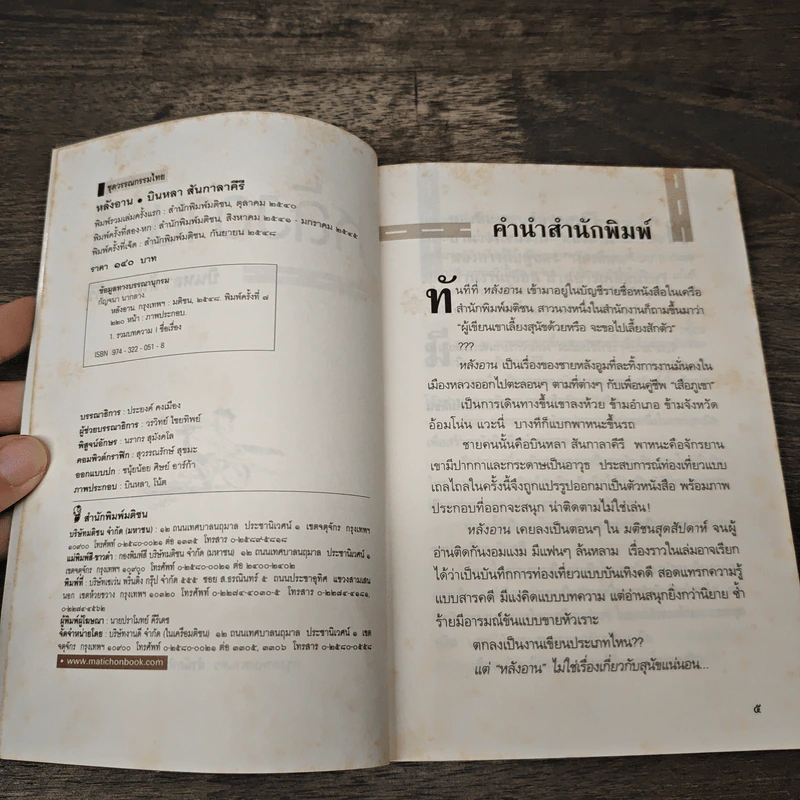 ชุดวรรณกรรมไทย
หลังอาน • บินหลา สันกาลาคีรี
พิมพ์รวมเล่มครั้งแรก : สำนักพิมพ์มติชน, ตุลาคม ๒๕๔๐
พิมพ์ครั้งที่สอง-หก : สำนักพิมพ์มติชน, สิงหาคม ๒๕๔๑ - มกราคม ๒๕๔๕
พิมพ์ครั้งที่เจ็ด : สำนักพิมพ์มติชน, กันยายน ๒๕๔๘
ราคา ๑๔๐ บาท
ข้อมูลทางบรรณานุกรม
กัญจนา นากลาง
หลังอาน. กรุงเทพฯ : มติชน, ๒๕๔๘. พิมพ์ครั้งที่ ๗
๒๒๐ หน้า : ภาพประกอบ.
1. รวมบทความ I ชื่อเรื่อง
ISBN 974 - 322 - 051 - 8
บรรณาธิการ : ประยงค์ คงเมือง
ผู้ช่วยบรรณาธิการ : วรวิทย์ ไชยทิพย์
พิสูจน์อักษร : นรากร สุมังคโล
คอมพิวต์กราฟิก : สุวรรณรักษ์ สุขมะ
ออกแบบปก : ชนุ้ยน้อย ศิษย์ อาร์ก้า
ภาพประกอบ : บินหลา, โน้ต
สำนักพิมพ์มติชน
บริษัทมติชน จำกัด (มหาชน) : ๑๒ ถนนเทศบาลนฤมาล ประชานิเวศน์ ๑ เขตจตุจักร กรุงเทพฯ
๑๐๙๐๐ โทรศัพท์ ๐-๒๕๘๐-๐๐๒๑ ต่อ ๑๒๓๕ โทรสาร ๐-๒๕๘๙-๕๘๑๘
แม่พิมพ์สี-ขาวดำ : กองพิมพ์สี บริษัทมติชน จำกัด (มหาชน) ๑๒ ถนนเทศบาลนฤมาล ประชานิเวศน์ ๑
เขตจตุจักร กรุงเทพฯ ๑๐๙๐๐ โทรศัพท์ ๐-๒๕๘๐-๐๐๒๑ ต่อ ๒๔๐๐-๒๔๐๒
พิมพ์ที่ : บริษัทเซเว่น พริ้นติ้ง กรุ๊ป จำกัด ๕๕๕ ซอย ส.ธรณินทร์ ๕ ถนนประชาอุทิศ แขวงสามเสน
นอก เขตห้วยขวาง กรุงเทพฯ ๑๐๓๒๐ โทรศัพท์ ๐-๒๒๗๔-๔๐๓๐-๕ โทรสาร ๐-๒๒๗๔-๔๑๘๑,
๐-๒๒๗๔-๔๕๖๒
ผู้พิมพ์ผู้โฆษณา : นายปราโมทย์ คีรีเดช
จัดจำหน่ายโดย : บริษัทงานดี จำกัด (ในเครือมติชน) ๑๒ ถนนเทศบาลนฤมาล ประชานิเวศน์ ๑ เขต
จตุจักร กรุงเทพฯ ๑๐๙๐๐ โทรศัพท์ ๐-๒๕๘๐-๐๐๒๑ ต่อ ๓๓๐๕, ๓๓๐๖ โทรสาร ๐-๒๕๘๐-๐๕๕๘
• www.matichonbook.com
คำนำสำนักพิมพ์
ทันทีที่ หลังอาน เข้ามาอยู่ในบัญชีรายชื่อหนังสือในเครือ
สำนักพิมพ์มติชน สาวนางหนึ่งในสำนักงานก็ถามขึ้นมาว่า
"ผู้เขียนเขาเลี้ยงสุนัขด้วยหรือ จะขอไปเลี้ยงสักตัว"
???
หลังอาน เป็นเรื่องของชายหลังอูมที่ละทิ้งการงานมั่นคงใน
เมืองหลวงออกไปตะลอนๆ ตามที่ต่างๆ กับเพื่อนคู่ชีพ "เสือภูเขา"
เป็นการเดินทางขึ้นเขาลงห้วย ข้ามอำเภอ ข้ามจังหวัด
อ้อมโน่น แวะนี่ บางทีก็แบกพาหนะขึ้นรถ
ชายคนนั้นคือบินหลา สันกาลาคีรี พาหนะคือจักรยาน
เขามีปากกาและกระดาษเป็นอาวุธ ประสบการณ์ท่องเที่ยวแบบ
เถลไถลในครั้งนี้จึงถูกแปรรูปออกมาเป็นตัวหนังสือ พร้อมภาพ
ประกอบที่ออกจะสนุก น่าติดตามไม่ใช่เล่น!
หลังอาน เคยลงเป็นตอนๆ ใน มติชนสุดสัปดาห์ จนผู้
อ่านติดกันงอมแงม มีแฟนๆ ล้นหลาม เรื่องราวในเล่มอาจเรียก
ได้ว่าเป็นบันทึกการท่องเที่ยวแบบบันเทิงคดี สอดแทรกความรู้
แบบสารคดี มีแง่คิดแบบบทความ แต่อ่านสนุกยิ่งกว่านิยาย ซ้ำ
ร้ายมีอารมณ์ขันแบบขายหัวเราะ
ตกลงเป็นงานเขียนประเภทไหน??
แต่ "หลังอาน" ไม่ใช่เรื่องเกี่ยวกับสุนัขแน่นอน...
๕